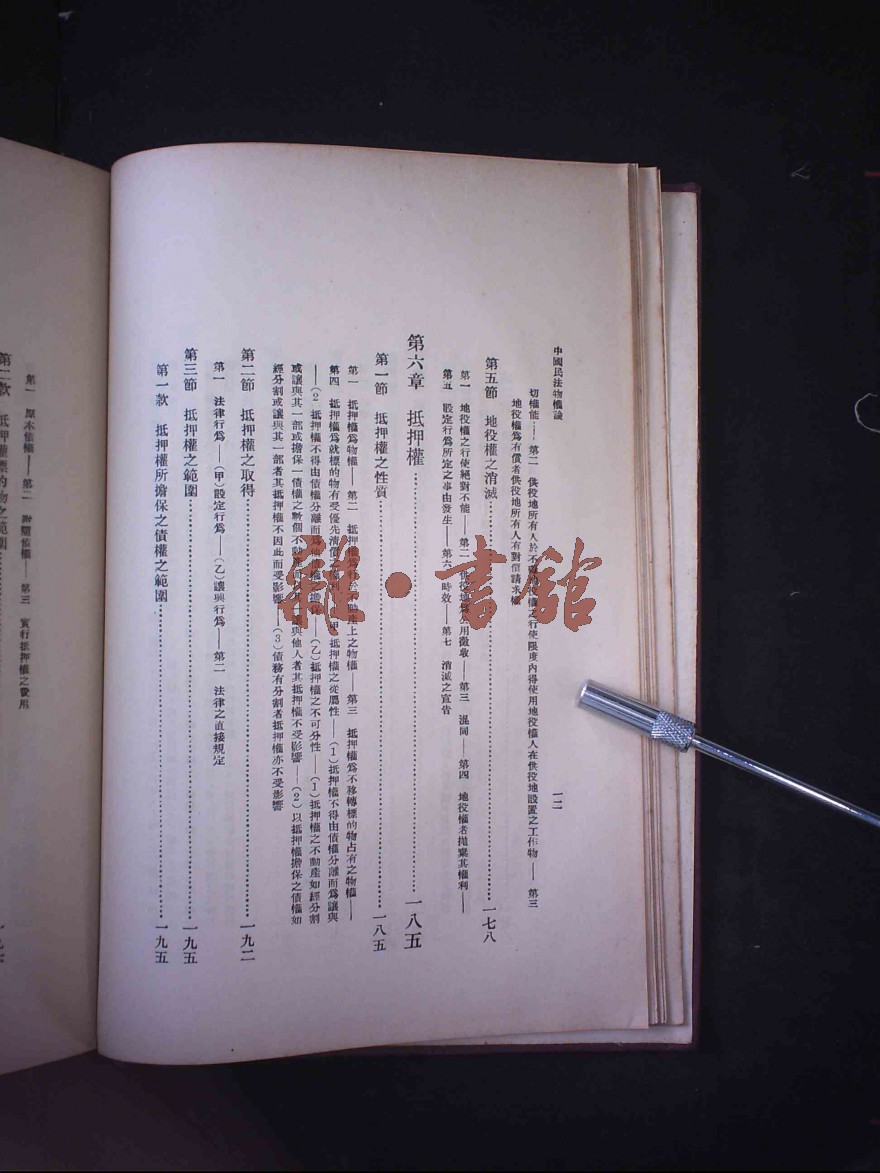 中國民法物權論
一二
切權能——第二 供役地所有人於不礙地役權之行使限度內得使用地役權人在供役地設置之工作物——第三
地役權爲有償者供役地所有人有對價請求權
第五節 地役權之消滅 一七八
第一 地役權之行使絕對不能——第二 供役地爲公用徵收——第三 混同——第四 地役權者拋棄其權利——
第五 設定行爲所定之事由發生——第六 時效——第七 消滅之宣告
第六章 抵押權 一八五
第一節 抵押權之性質 一八五
第一 抵押權爲物權——第二 抵押權爲存於不動產上之物權——第三 抵押權爲不移轉標的物占有之物權——
第四 抵押權爲就標的物有受優先清償之權利——(甲)抵押權之從屬性——(1)抵押權不得由債權分離而爲讓與
——(2)抵押權不得由債權分離而爲他債權之擔保——(乙)抵押權之不可分性——(1)抵押權之不動產如經分割
或讓與其一部或擔保一債權之數個不動產而以其一讓與他人者其抵押權不受影響——(2)以抵押權擔保之債權如
經分割或讓與其一部者其抵押權不因此而受影響——(3)債務有分割者抵押權亦不受影響
第二節 抵押權之取得 一九二
第一 法律行爲——(甲)設定行爲——(乙)讓與行爲——第二 法律之直接規定
第三節 抵押權之範圍 一九五
第一款 抵押權所擔保之債權之範圍 一九五
第一 原本債權——第二 附隨債權——第三 實行抵押權之費用
第二款 抵押權標的物之範圍
雜·書館